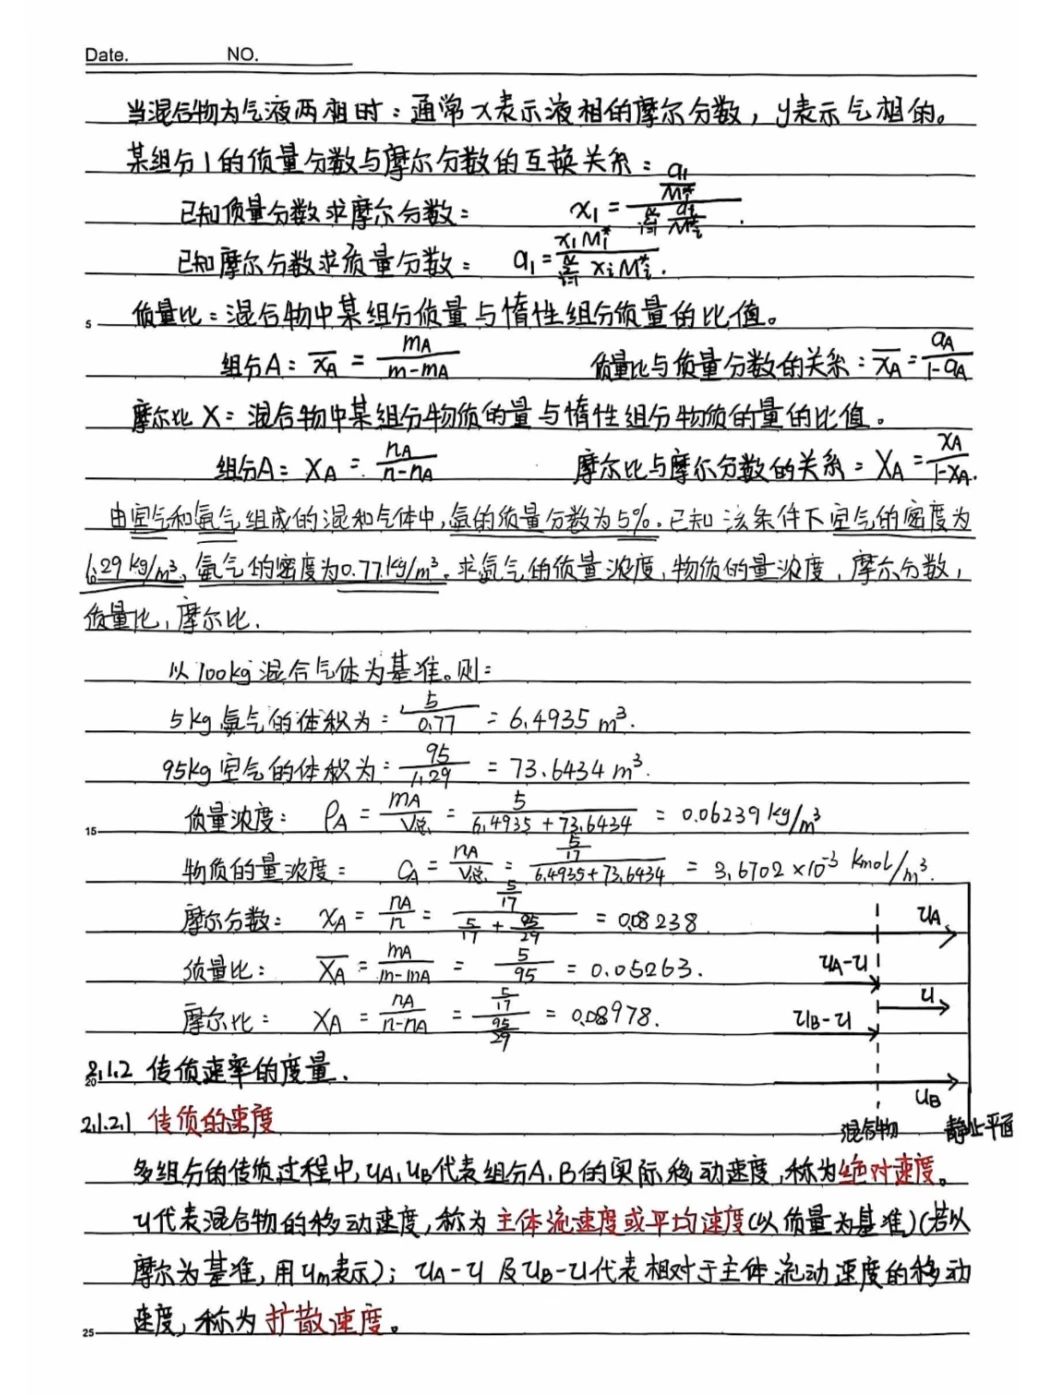 Date. NO.
当混合物为气液两相时：通常x表示液相的摩尔分数，y表示气相的。
某组分1的质量分数与摩尔分数的互换关系：
已知质量分数求摩尔分数： x₁ = (a₁/M₁*) / (∑ᵢ₌₁ᴺ aᵢ/Mᵢ*).
已知摩尔分数求质量分数： a₁ = x₁M₁* / (∑ᵢ₌₁ᴺ xᵢMᵢ*).
5 质量比：混合物中某组分质量与惰性组分质量的比值。
组分A：x̄_A = m_A/(m-m_A) 质量比与质量分数的关系：x̄_A = a_A/(1-a_A)
摩尔比X：混合物中某组分物质的量与惰性组分物质的量的比值。
组分A：X_A = n_A/(n-n_A) 摩尔比与摩尔分数的关系：X_A = x_A/(1-x_A).
由空气和氨气组成的混和气体中，氨的质量分数为5%.已知该条件下空气的密度为
1.29 kg/m³，氨气的密度为0.77kg/m³.求氨气的质量浓度，物质的量浓度，摩尔分数，
质量比，摩尔比.
以100kg混合气体为基准。则：
5kg氨气的体积为：5/0.77 = 6.4935 m³.
95kg空气的体积为：95/1.29 = 73.6434 m³.
15 质量浓度： ρ_A = m_A/V总 = 5/(6.4935+73.6434) = 0.06239 kg/m³
物质的量浓度： C_A = n_A/V总 = (5/17)/(6.4935+73.6434) = 3.6702×10⁻³ kmol/m³.
摩尔分数： x_A = n_A/n = (5/17)/(5/17+95/29) = 0.08238.
质量比： X̄_A = m_A/(m-m_A) = 5/95 = 0.05263.
摩尔比： X_A = n_A/(n-n_A) = (5/17)/(95/29) = 0.08978.
u_A
u_A-u
u
u_B-u
u_B
混合物 静止平面
20 2.1.2 传质速率的度量.
2.1.2.1 传质的速度
多组分的传质过程中，u_A，u_B代表组分A、B的实际移动速度，称为绝对速度。
u代表混合物的移动速度，称为主体流速度或平均速度（以质量为基准）（若以
摩尔为基准，用u_m表示）；u_A-u 及u_B-u代表相对于主体流动速度的移动
25 速度，称为扩散速度。